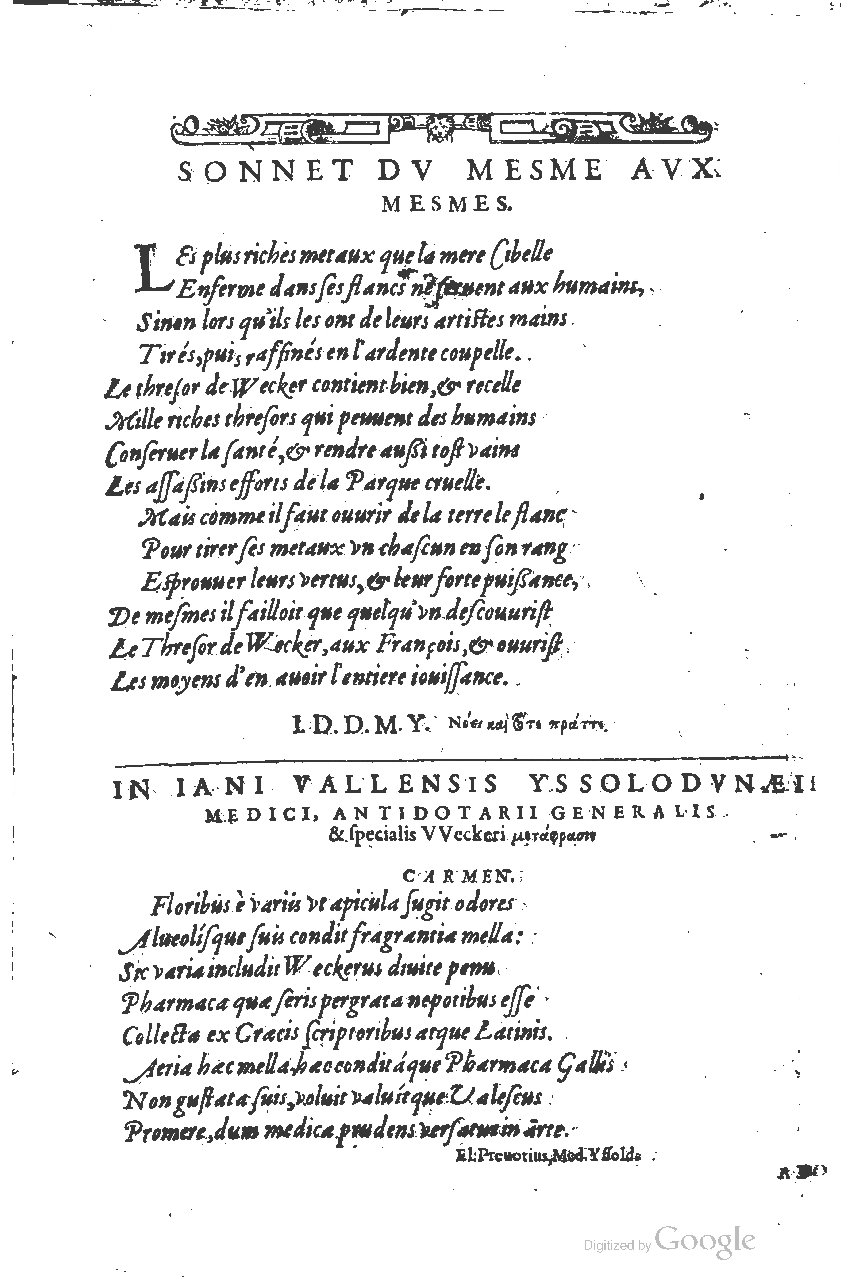 SONNET DV MESME AVX
MESMES.
LEs plus riches metaux que la mere Cibelle
Enferme dans ſes flancs ne ſeruent aux humains,
Sinon lors qu'ils les ont de leurs artiſtes mains
Tirés, puis raffinés en l'ardente coupelle.
Le threſor de Wecker contient bien, & recelle
Mille riches threſors qui peuuent des humains
Conſeruer la ſanté, & rendre auſſi toſt vains
Les aſſaſſins efforts de la Parque cruelle.
Mais comme il faut ouurir de la terre le flanc
Pour tirer ſes metaux vn chaſcun en ſon rang
Eſprouuer leurs vertus, & leur forte puiſſance,
De meſmes il failloit que quelqu'vn deſcouuriſt
Le Threſor de Wecker, aux François, & ouuriſt
Les moyens d'en auoir l'entiere iouiſſance.
I. D. D. M. Y. Νόει καὶ πράττε.
IN IANI VALLENSIS YSSOLODVNÆI
MEDICI, ANTIDOTARII GENERALIS
& ſpecialis VVeckeri μετάφρασιν
CARMEN.
Floribus è variis vt apicula ſugit odores
Alueolíſque ſuis condit fragrantia mella:
Sic varia includit Weckerus diuite penu
Pharmaca quæ ſeris pergrata nepotibus eſſe
Collecta ex Græcis ſcriptoribus atque Latinis.
Aeria hæc mella, hæc conditáque Pharmaca Gallis
Non guſtata ſuis, voluit valuítque Valeſcus
Promere, dum medica prudens verſatur in arte.
El. Preuotius, Med. Yſſold.
Digitized by Google